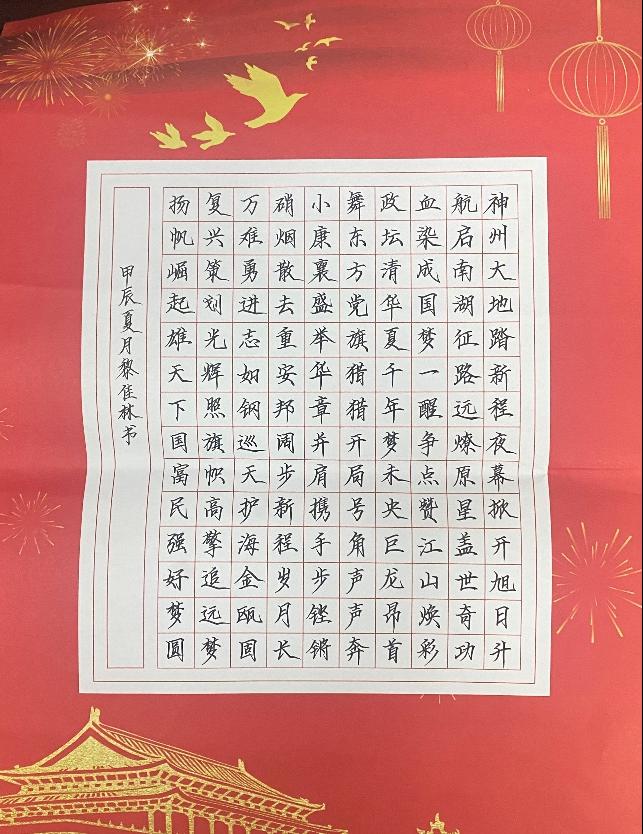 神州大地踏新程夜幕掀开旭日升
航启南湖征路远燎原星盖世奇功
血染成国梦一醒争点赞江山焕彩
政坛清华夏千年梦未央巨龙昂首
舞东方党旗猎猎开局号角声声奔
小康襄盛举华章并肩携手步铿锵
硝烟散去重安邦阔步新程岁月长
万难勇进志如钢巡天护海金瓯固
复兴策划光辉照旗帜高擎追远梦
扬帆崛起雄天下国富民强好梦圆
甲辰夏月黎佳林书